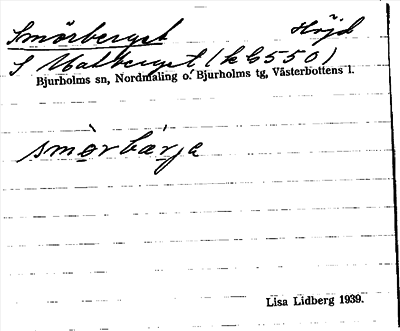 Smörberget Höjd
S Matberget (k 6550)
Bjurholms sn, Nordmaling o. Bjurholms tg, Västerbottens l.
smörbärjà
Lisa Lidberg 1939.